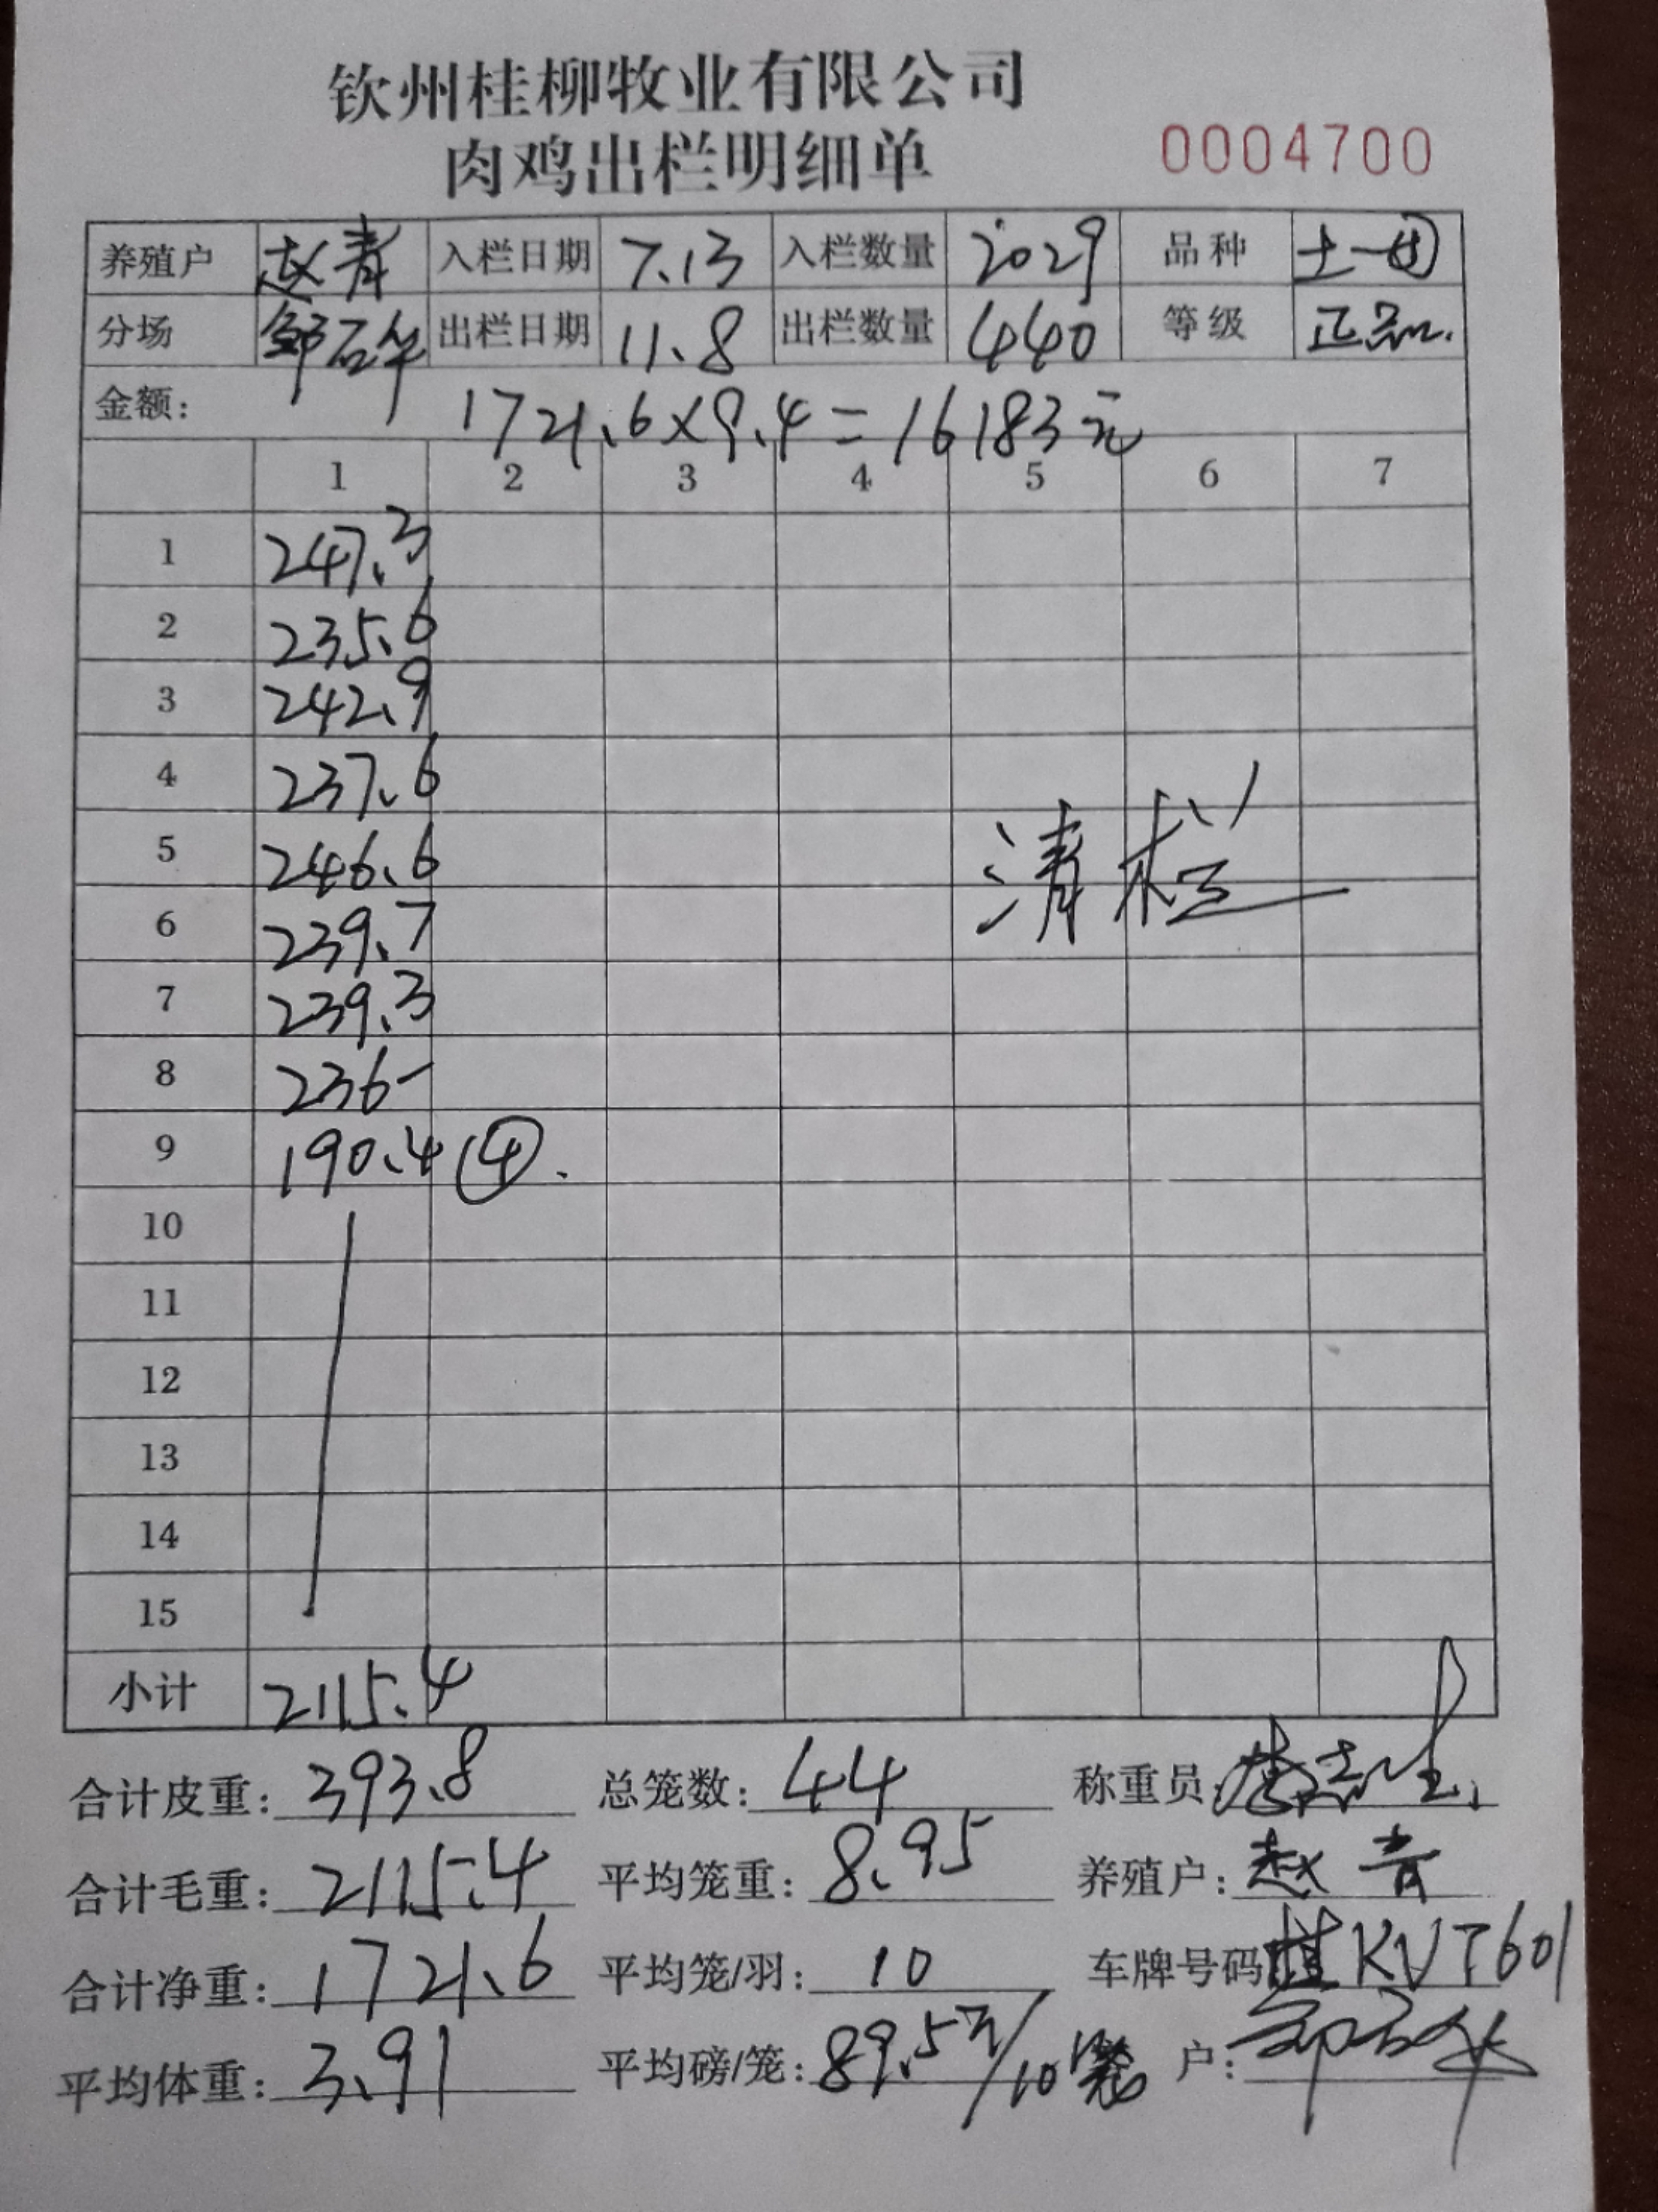 钦州桂柳牧业有限公司
肉鸡出栏明细单 0004700
养殖户 赵青 入栏日期 7.13 入栏数量 2029 品种 土一
分场 邹石华 出栏日期 11.8 出栏数量 440 等级 正品.
金额： 1721.6×9.4=16183元
1 2 3 4 5 6 7
1 247.3
2 235.6
3 242.9
4 237.6
5 246.6
清栏
6 239.7
7 239.3
8 236-
9 190.4 (④.
10
11
12
13
14
15
小计 2115.4
合计皮重：393.8 总笼数：44 称重员：
合计毛重：2115.4 平均笼重：8.95 养殖户：赵青
合计净重：1721.6 平均笼/羽：10 车牌号码 桂KVT601
平均体重：3.91 平均磅/笼：89.5斤/10笼 户：邹石华